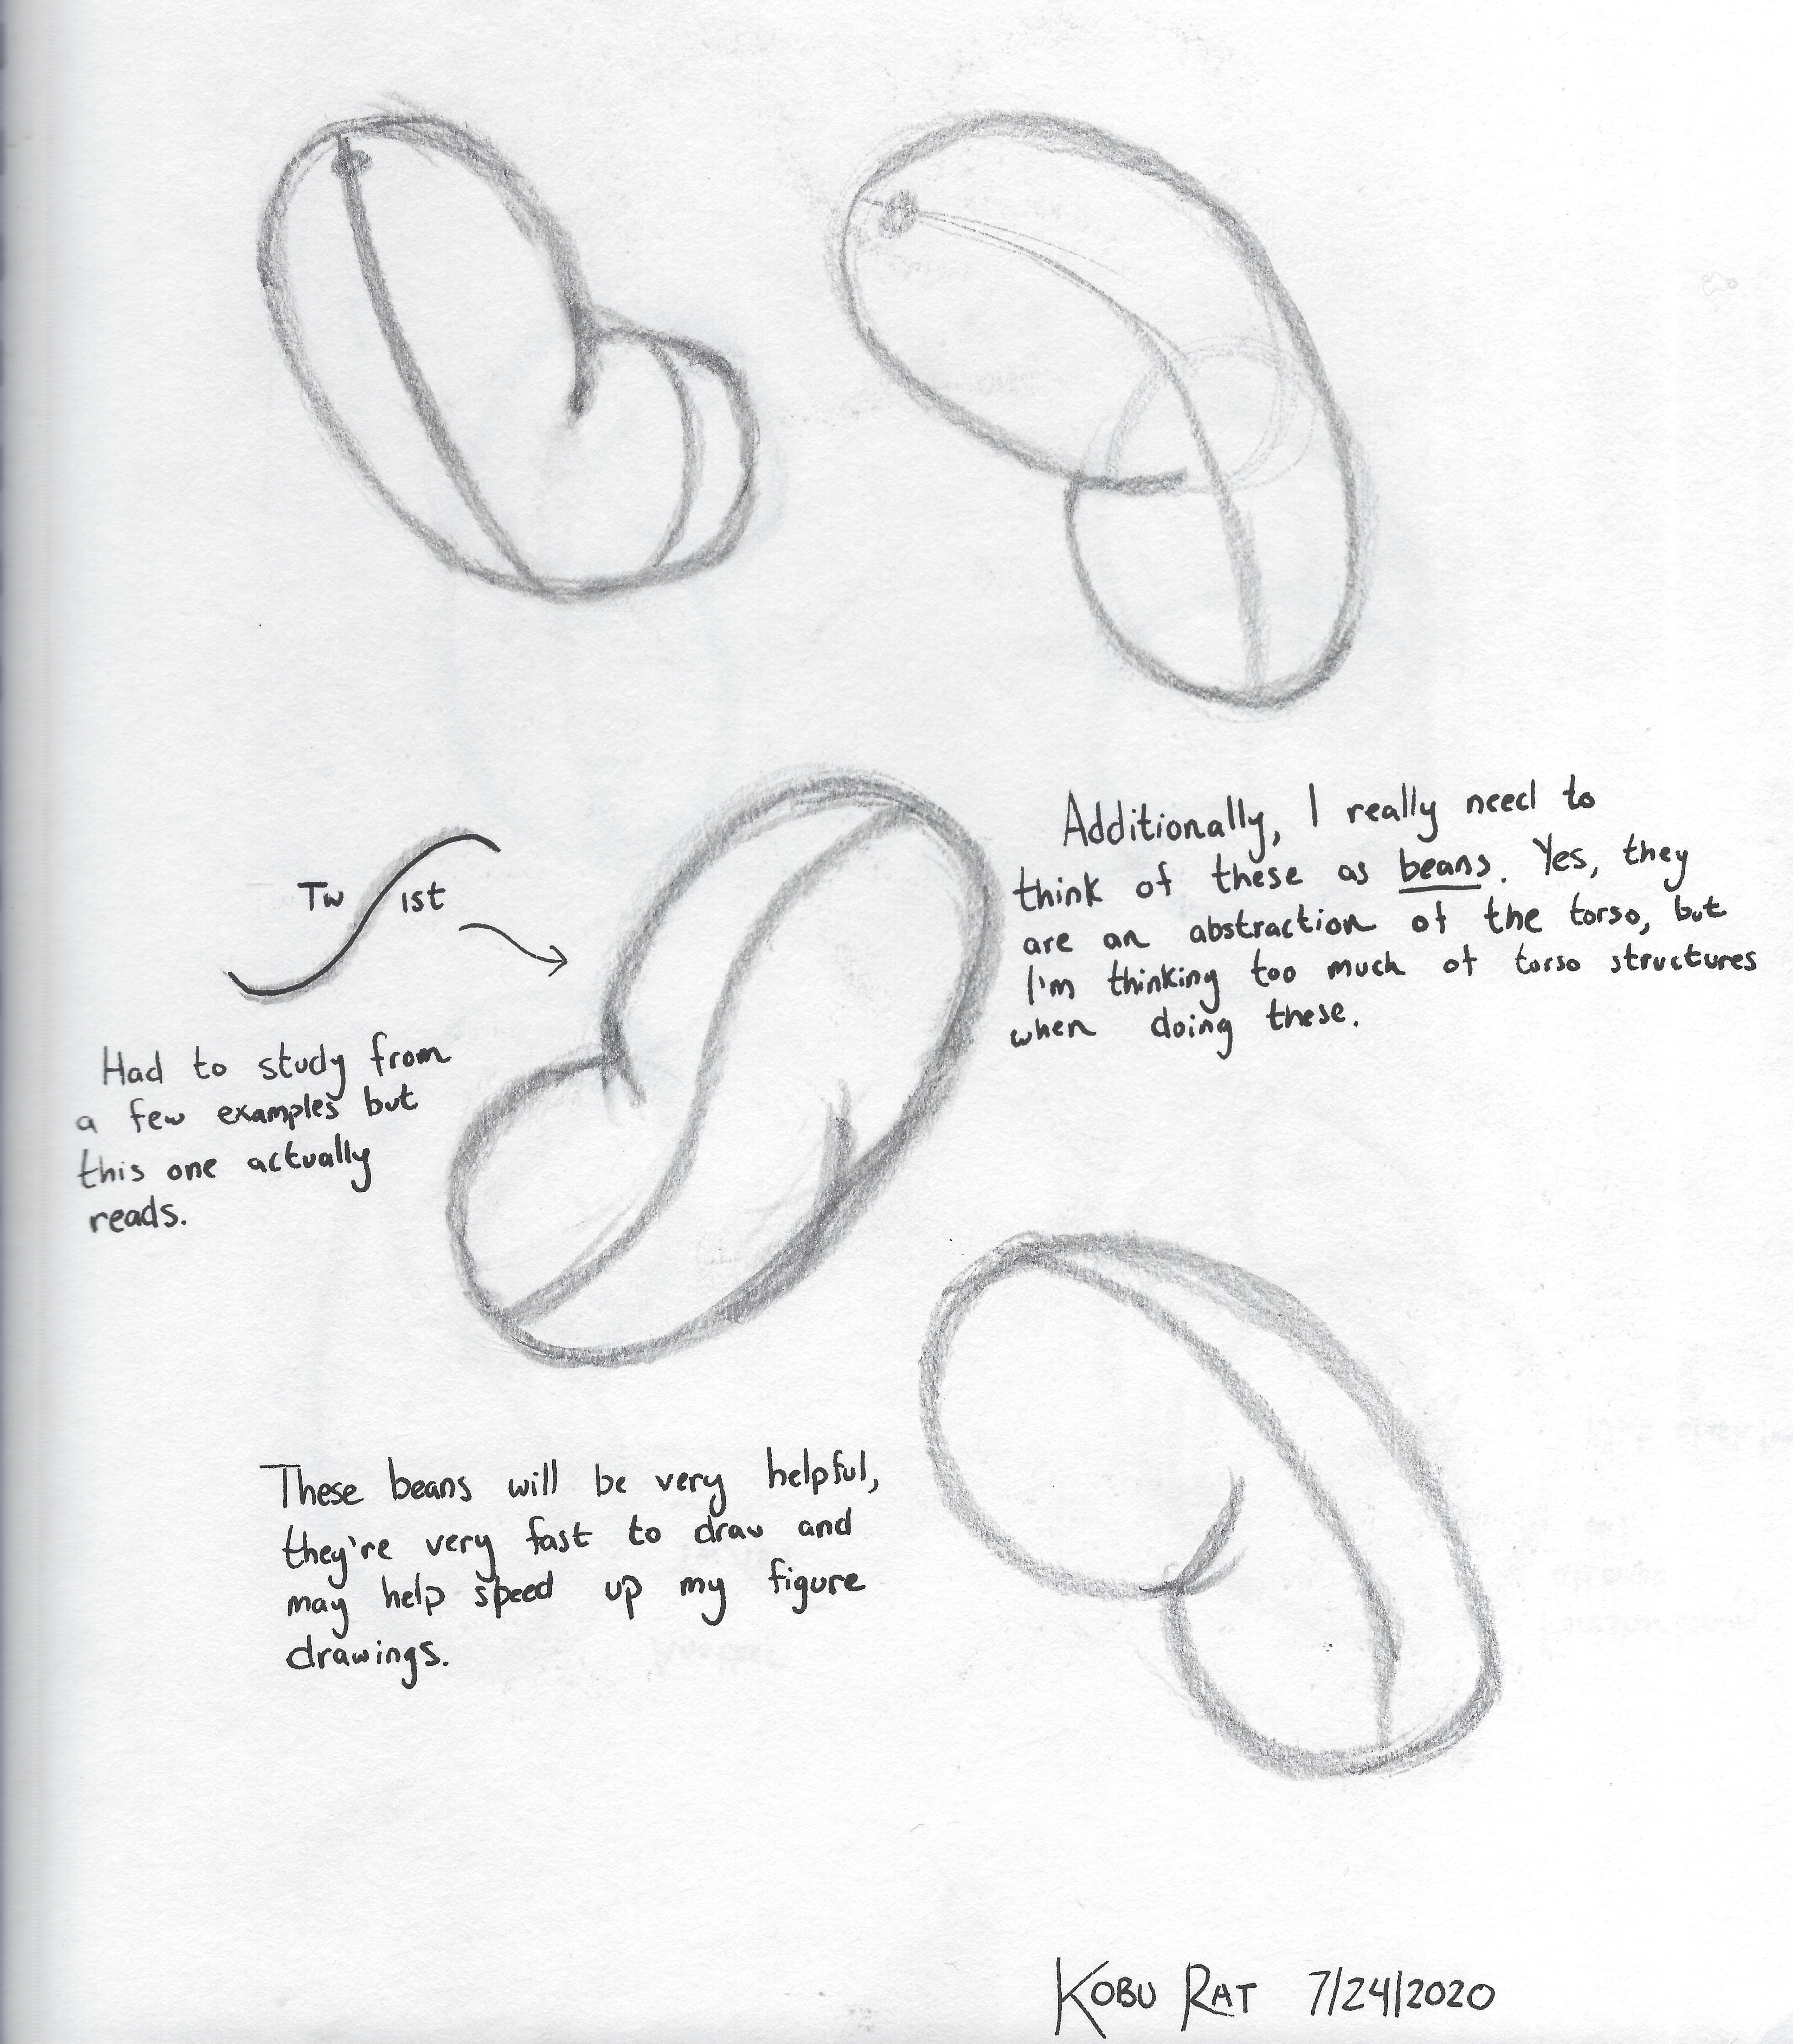 Twist
Additionally, I really need to
think of these as beans. Yes, they
are an abstraction of the torso, but
I'm thinking too much of torso structures
when doing these.
Had to study from
a few examples but
this one actually
reads.
These beans will be very helpful,
they're very fast to draw and
may help speed up my figure
drawings.
KOBU RAT 7/24/2020